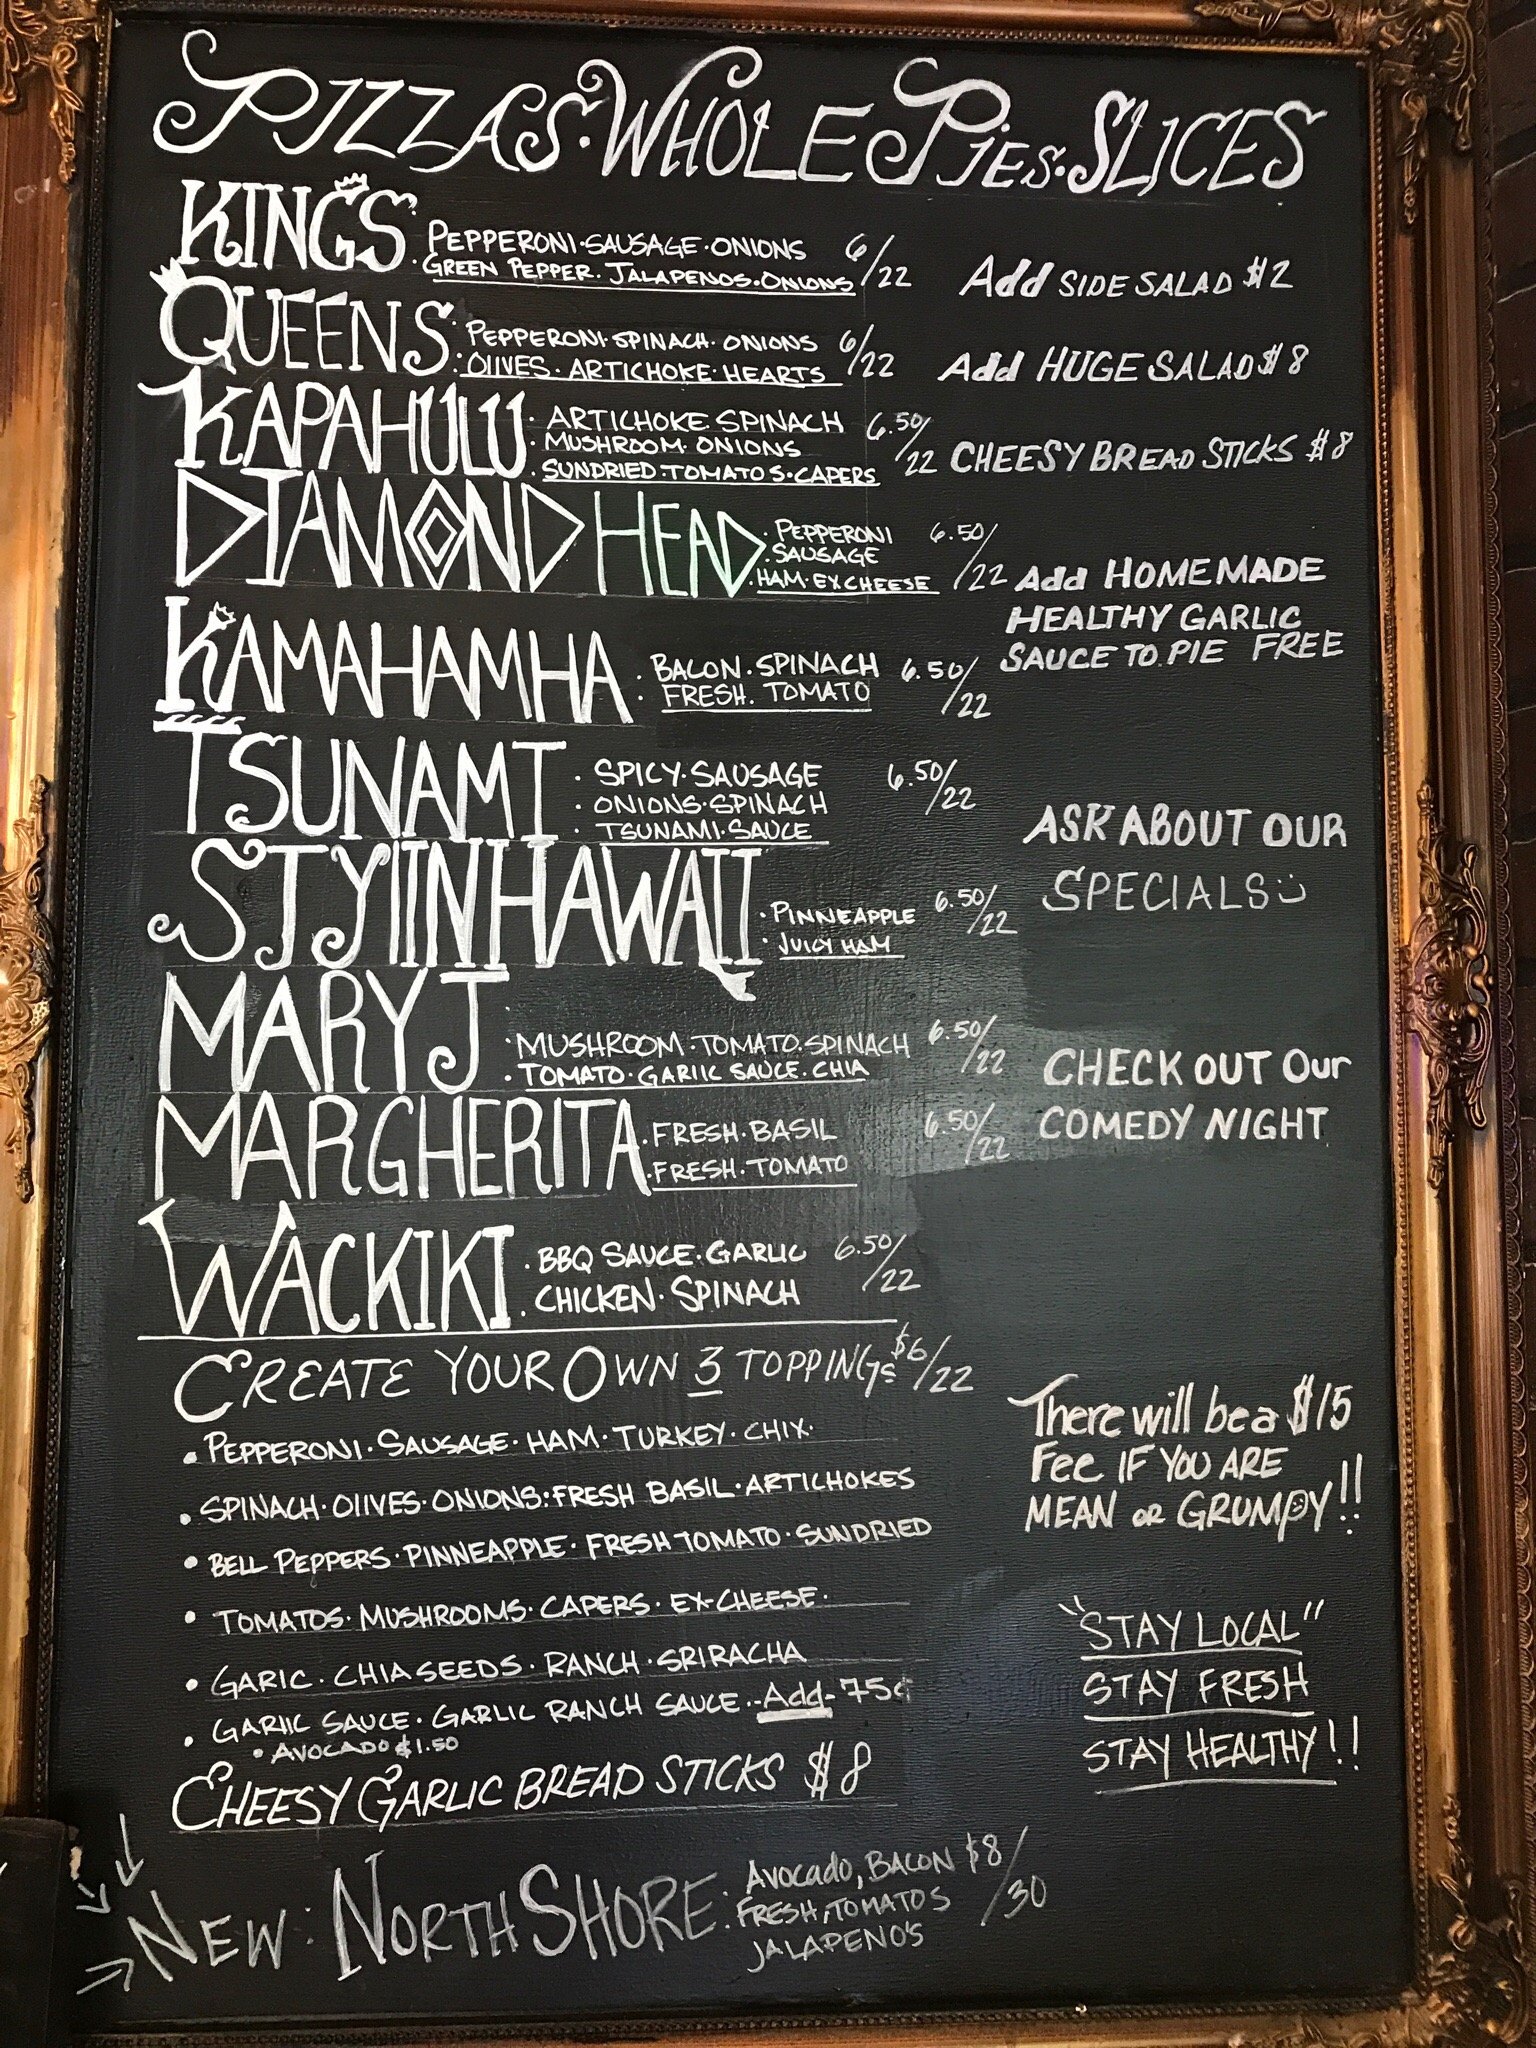 PIZZAS · WHOLE PIES · SLICES
KINGS · PEPPERONI · SAUSAGE · ONIONS 6/22
· GREEN PEPPER · JALAPENOS · ONIONS
Add SIDE SALAD $2
QUEENS · PEPPERONI · SPINACH · ONIONS 6/22
· OLIVES · ARTICHOKE · HEARTS
Add HUGE SALAD $8
KAPAHULU · ARTICHOKE SPINACH 6.50/22
· MUSHROOM · ONIONS
· SUNDRIED · TOMATOS · CAPERS
CHEESY BREAD STICKS $8
DIAMOND HEAD · PEPPERONI 6.50/22
· SAUSAGE
· HAM · EX CHEESE
Add HOMEMADE
HEALTHY GARLIC
SAUCE TO PIE FREE
KAMAHAMHA · BACON · SPINACH 6.50/22
· FRESH · TOMATO
TSUNAMI · SPICY · SAUSAGE 6.50/22
· ONIONS · SPINACH
· TSUNAMI · SAUCE
ASK ABOUT OUR
SPECIALS
STYIINHAWAII · PINNEAPPLE 6.50/22
· JUICY HAM
MARY J · MUSHROOM · TOMATO · SPINACH 6.50/22
· TOMATO · GARLIC SAUCE · CHIA
CHECK OUT Our
COMEDY NIGHT
MARGHERITA · FRESH · BASIL 6.50/22
· FRESH · TOMATO
WACKIKI · BBQ SAUCE · GARLIC 6.50/22
· CHICKEN · SPINACH
CREATE YOUR OWN 3 TOPPINGS $6/22
• PEPPERONI · SAUSAGE · HAM · TURKEY · CHIX ·
• SPINACH · OLIVES · ONIONS : FRESH BASIL · ARTICHOKES
• BELL PEPPERS · PINNEAPPLE · FRESH TOMATO · SUNDRIED
• TOMATOS · MUSHROOMS · CAPERS · EX-CHEESE ·
• GARIC · CHIA SEEDS · RANCH · SRIRACHA
• GARLIC SAUCE · GARLIC RANCH SAUCE ·· Add - 75¢
• AVOCADO $1.50
CHEESY GARLIC BREAD STICKS $8
There will be a $15
Fee IF YOU ARE
MEAN or GRUMPY!!
"STAY LOCAL"
STAY FRESH
STAY HEALTHY!!
NEW : NORTH SHORE : Avocado, BACON $8/30
FRESH, TOMATOS
JALAPENO'S